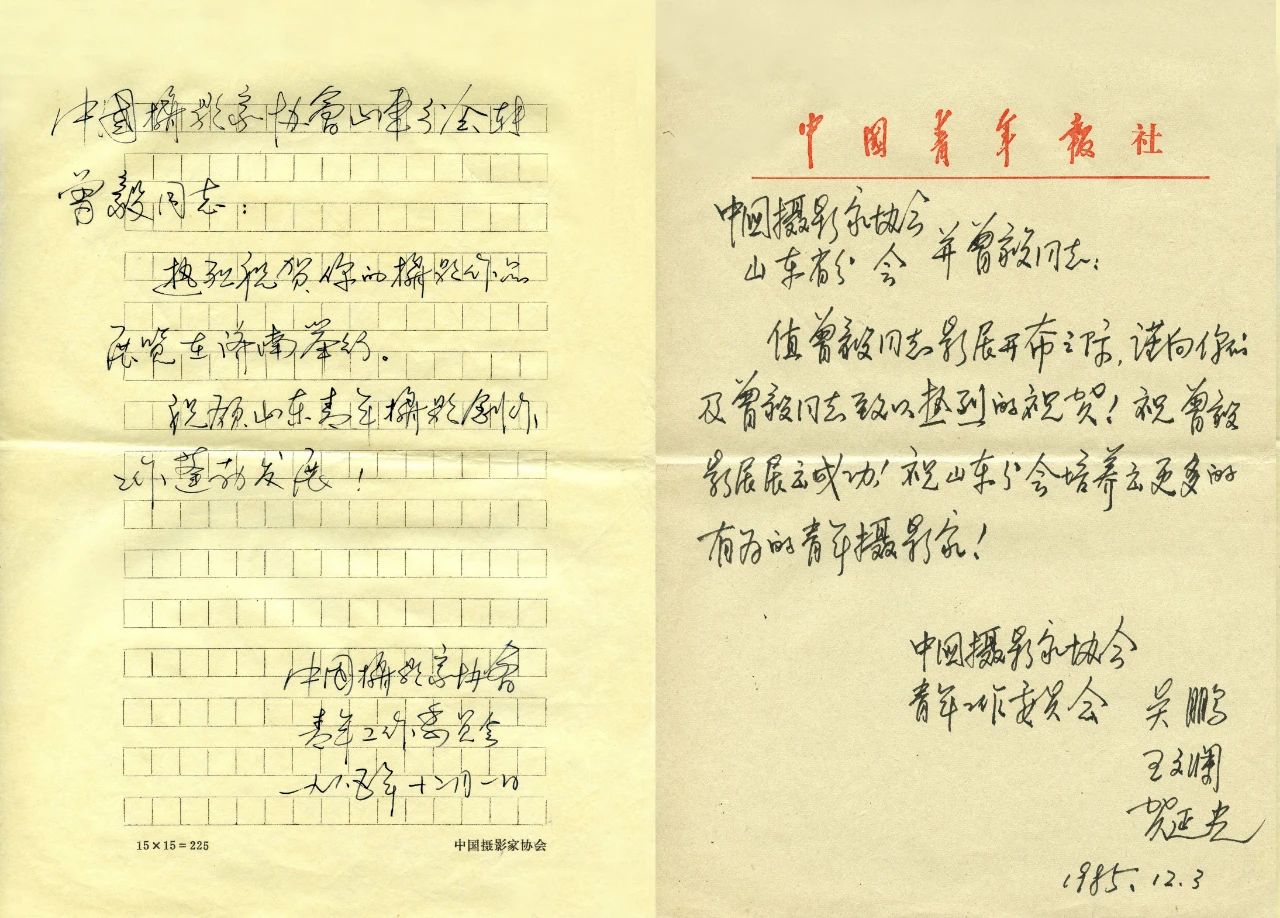 中國攝影家协會山東分会轉
曾毅同志：
热烈祝贺你的攝影作品
展览在济南举行。
祝願山东青年攝影創作
工作蓬勃发展！
中国攝影家协會
青年工作委员会
一九八五年十二月一日
15×15=225
中国摄影家协会
中国青年报社
中国摄影家协会
山东省分会
并曾毅同志：
值曾毅同志影展开布之际，谨向你们
及曾毅同志致以热烈的祝贺！祝曾毅
影展展出成功！祝山东分会培养出更多的
有为的青年摄影家！
中国摄影家协会
青年工作委员会
吴鹏
王文澜
贺延光
1985.12.3